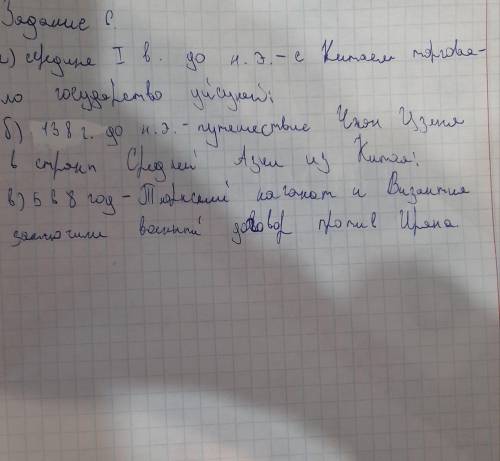 Задание С.
а) середине I в. до н. э. – с Китаем торгова-
ло государство уйсуней;
б) 138 г. до н. э. – путешествие Чжан Цзеня
в стран Средней Азии из Китая;
в) 5 в 8 год – Тюркский каганат и Византия
заключили военный договор против Ирана